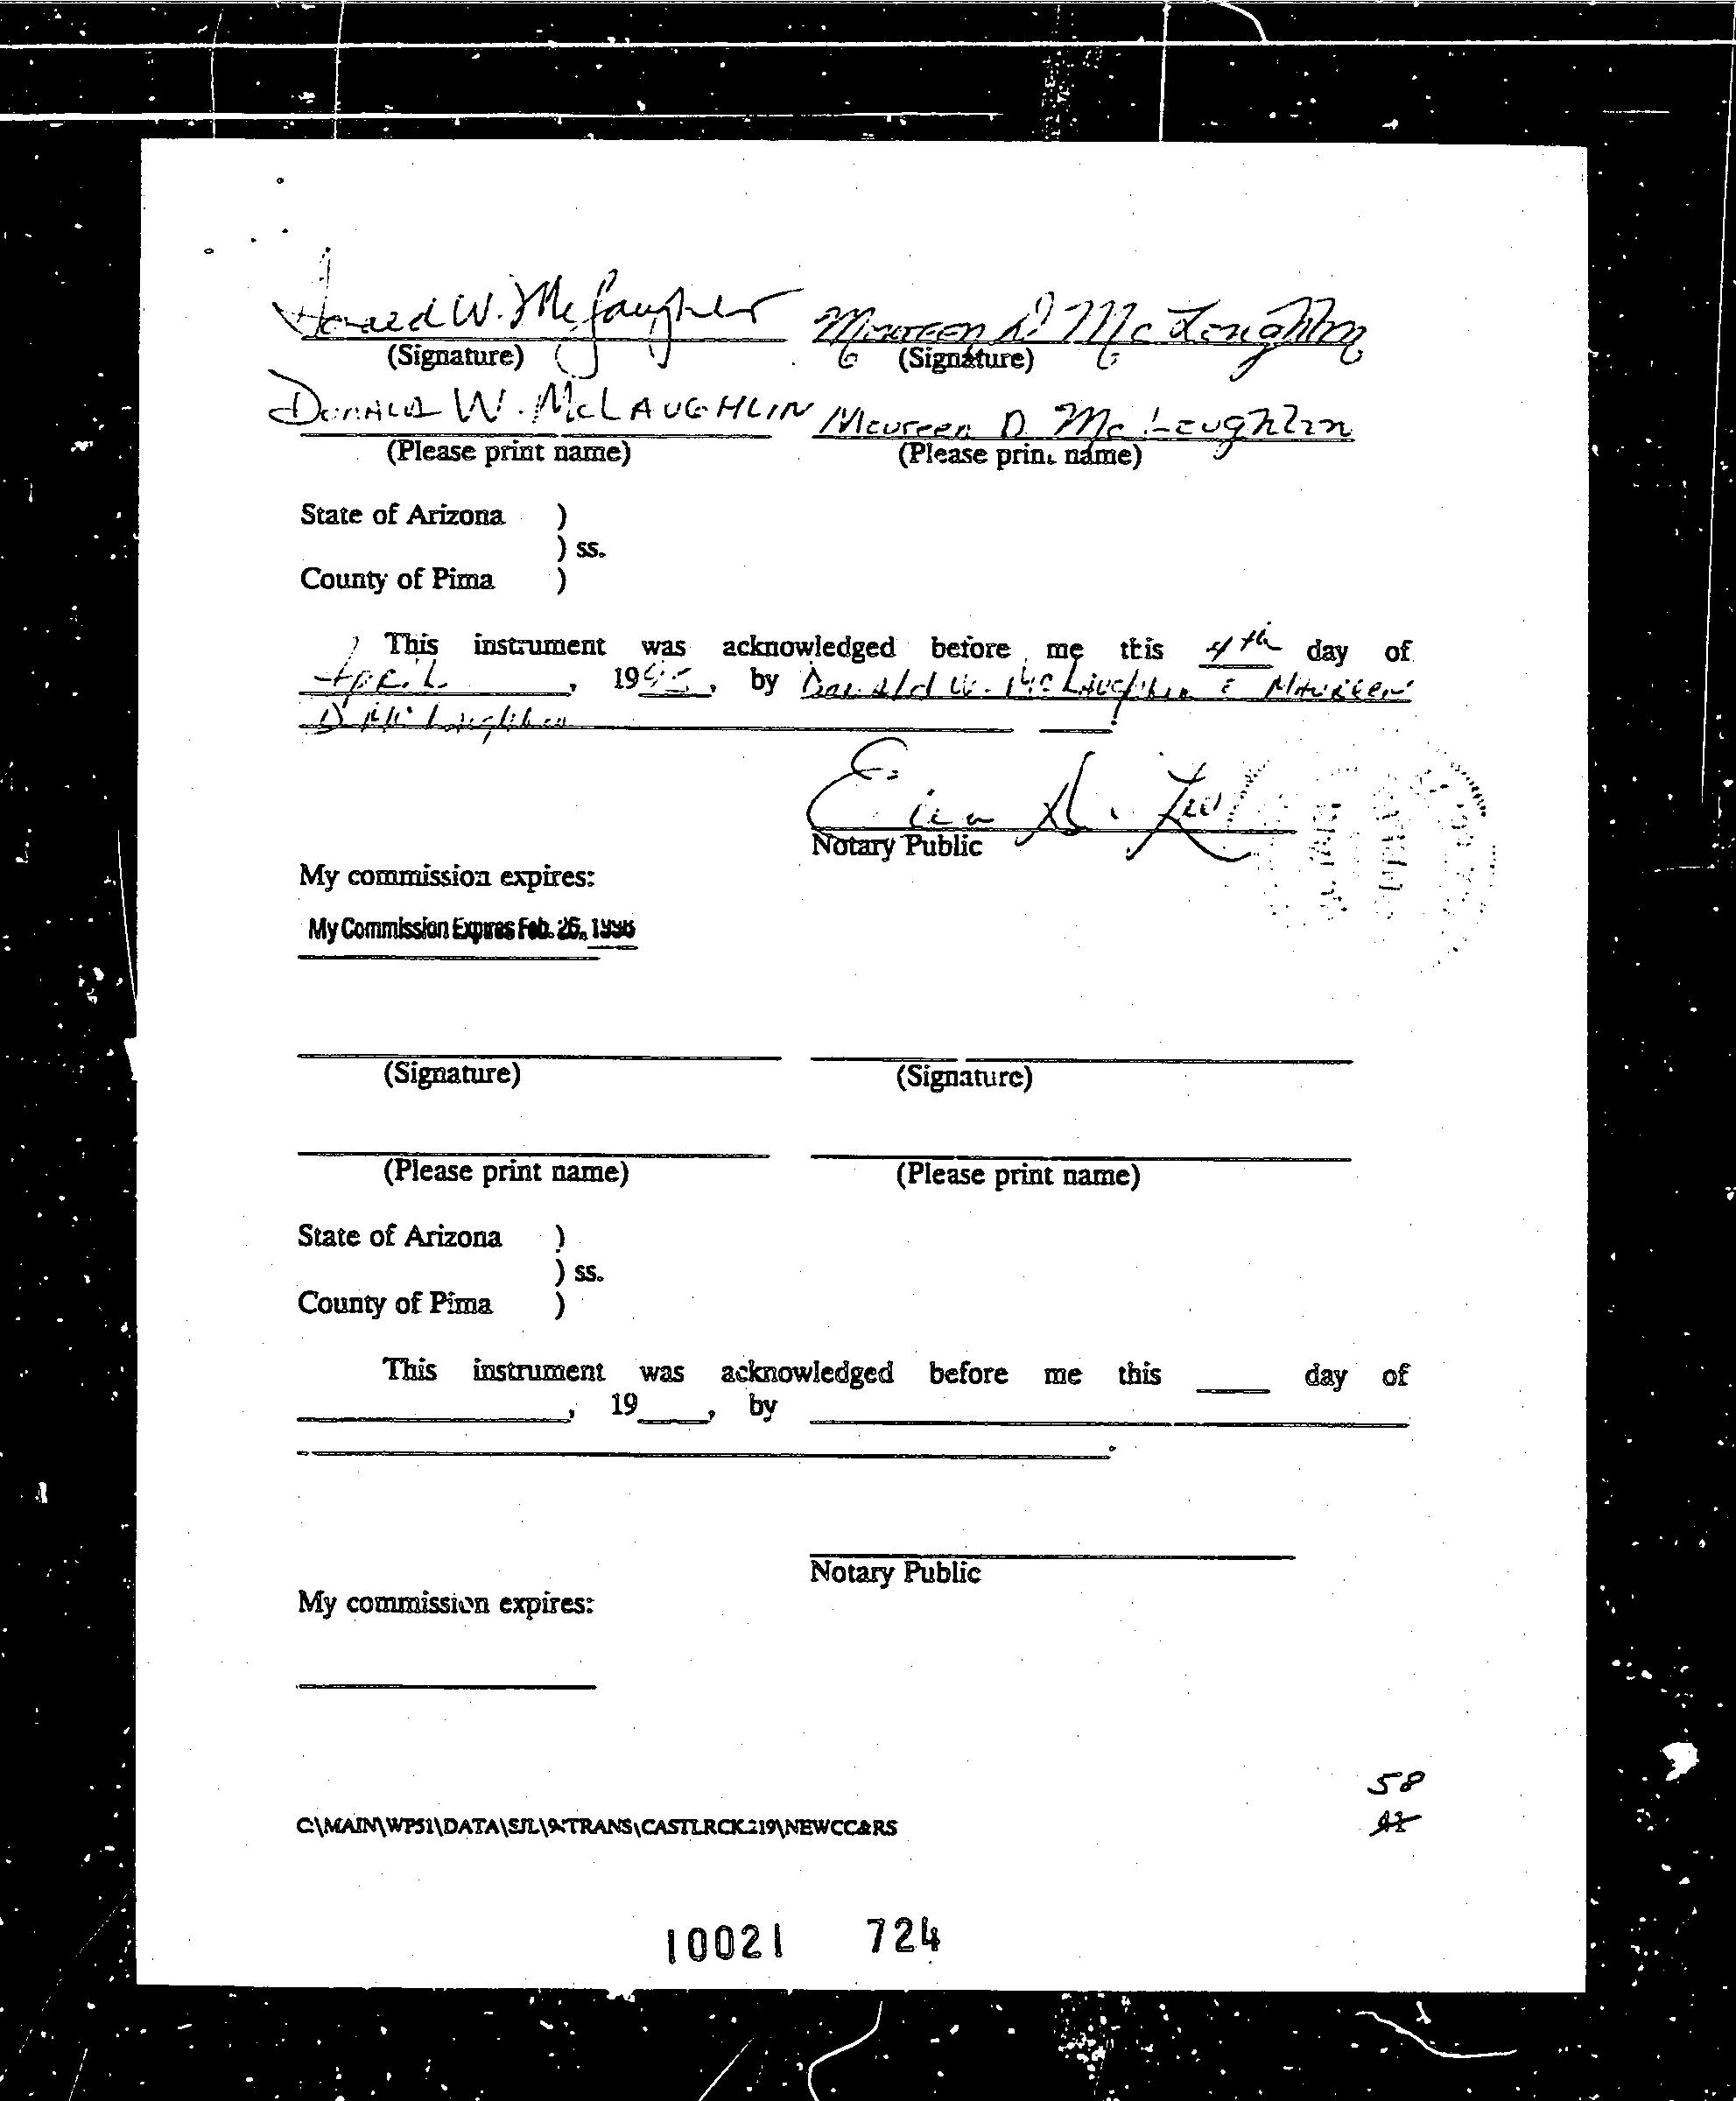 Donald W. McLaughlin Maureen D. McLaughlin
(Signature) (Signature)
DONALD W. McLAUGHLIN Maureen D. McLaughlin
(Please print name) (Please print name)
State of Arizona )
) ss.
County of Pima )
This instrument was acknowledged before me this 4th day of
April, 1995, by Donald W. McLaughlin & Maureen
D. McLaughlin.
Notary Public
My commission expires:
My Commission Expires Feb. 26, 1996
(Signature) (Signature)
(Please print name) (Please print name)
State of Arizona )
) ss.
County of Pima )
This instrument was acknowledged before me this ____ day of
____, 19____, by ____
____.
Notary Public
My commission expires:
58
C:\MAIN\WP51\DATA\SJL\9:TRANS\CASTLRCK.219\NEWCC&RS 42
10021 724